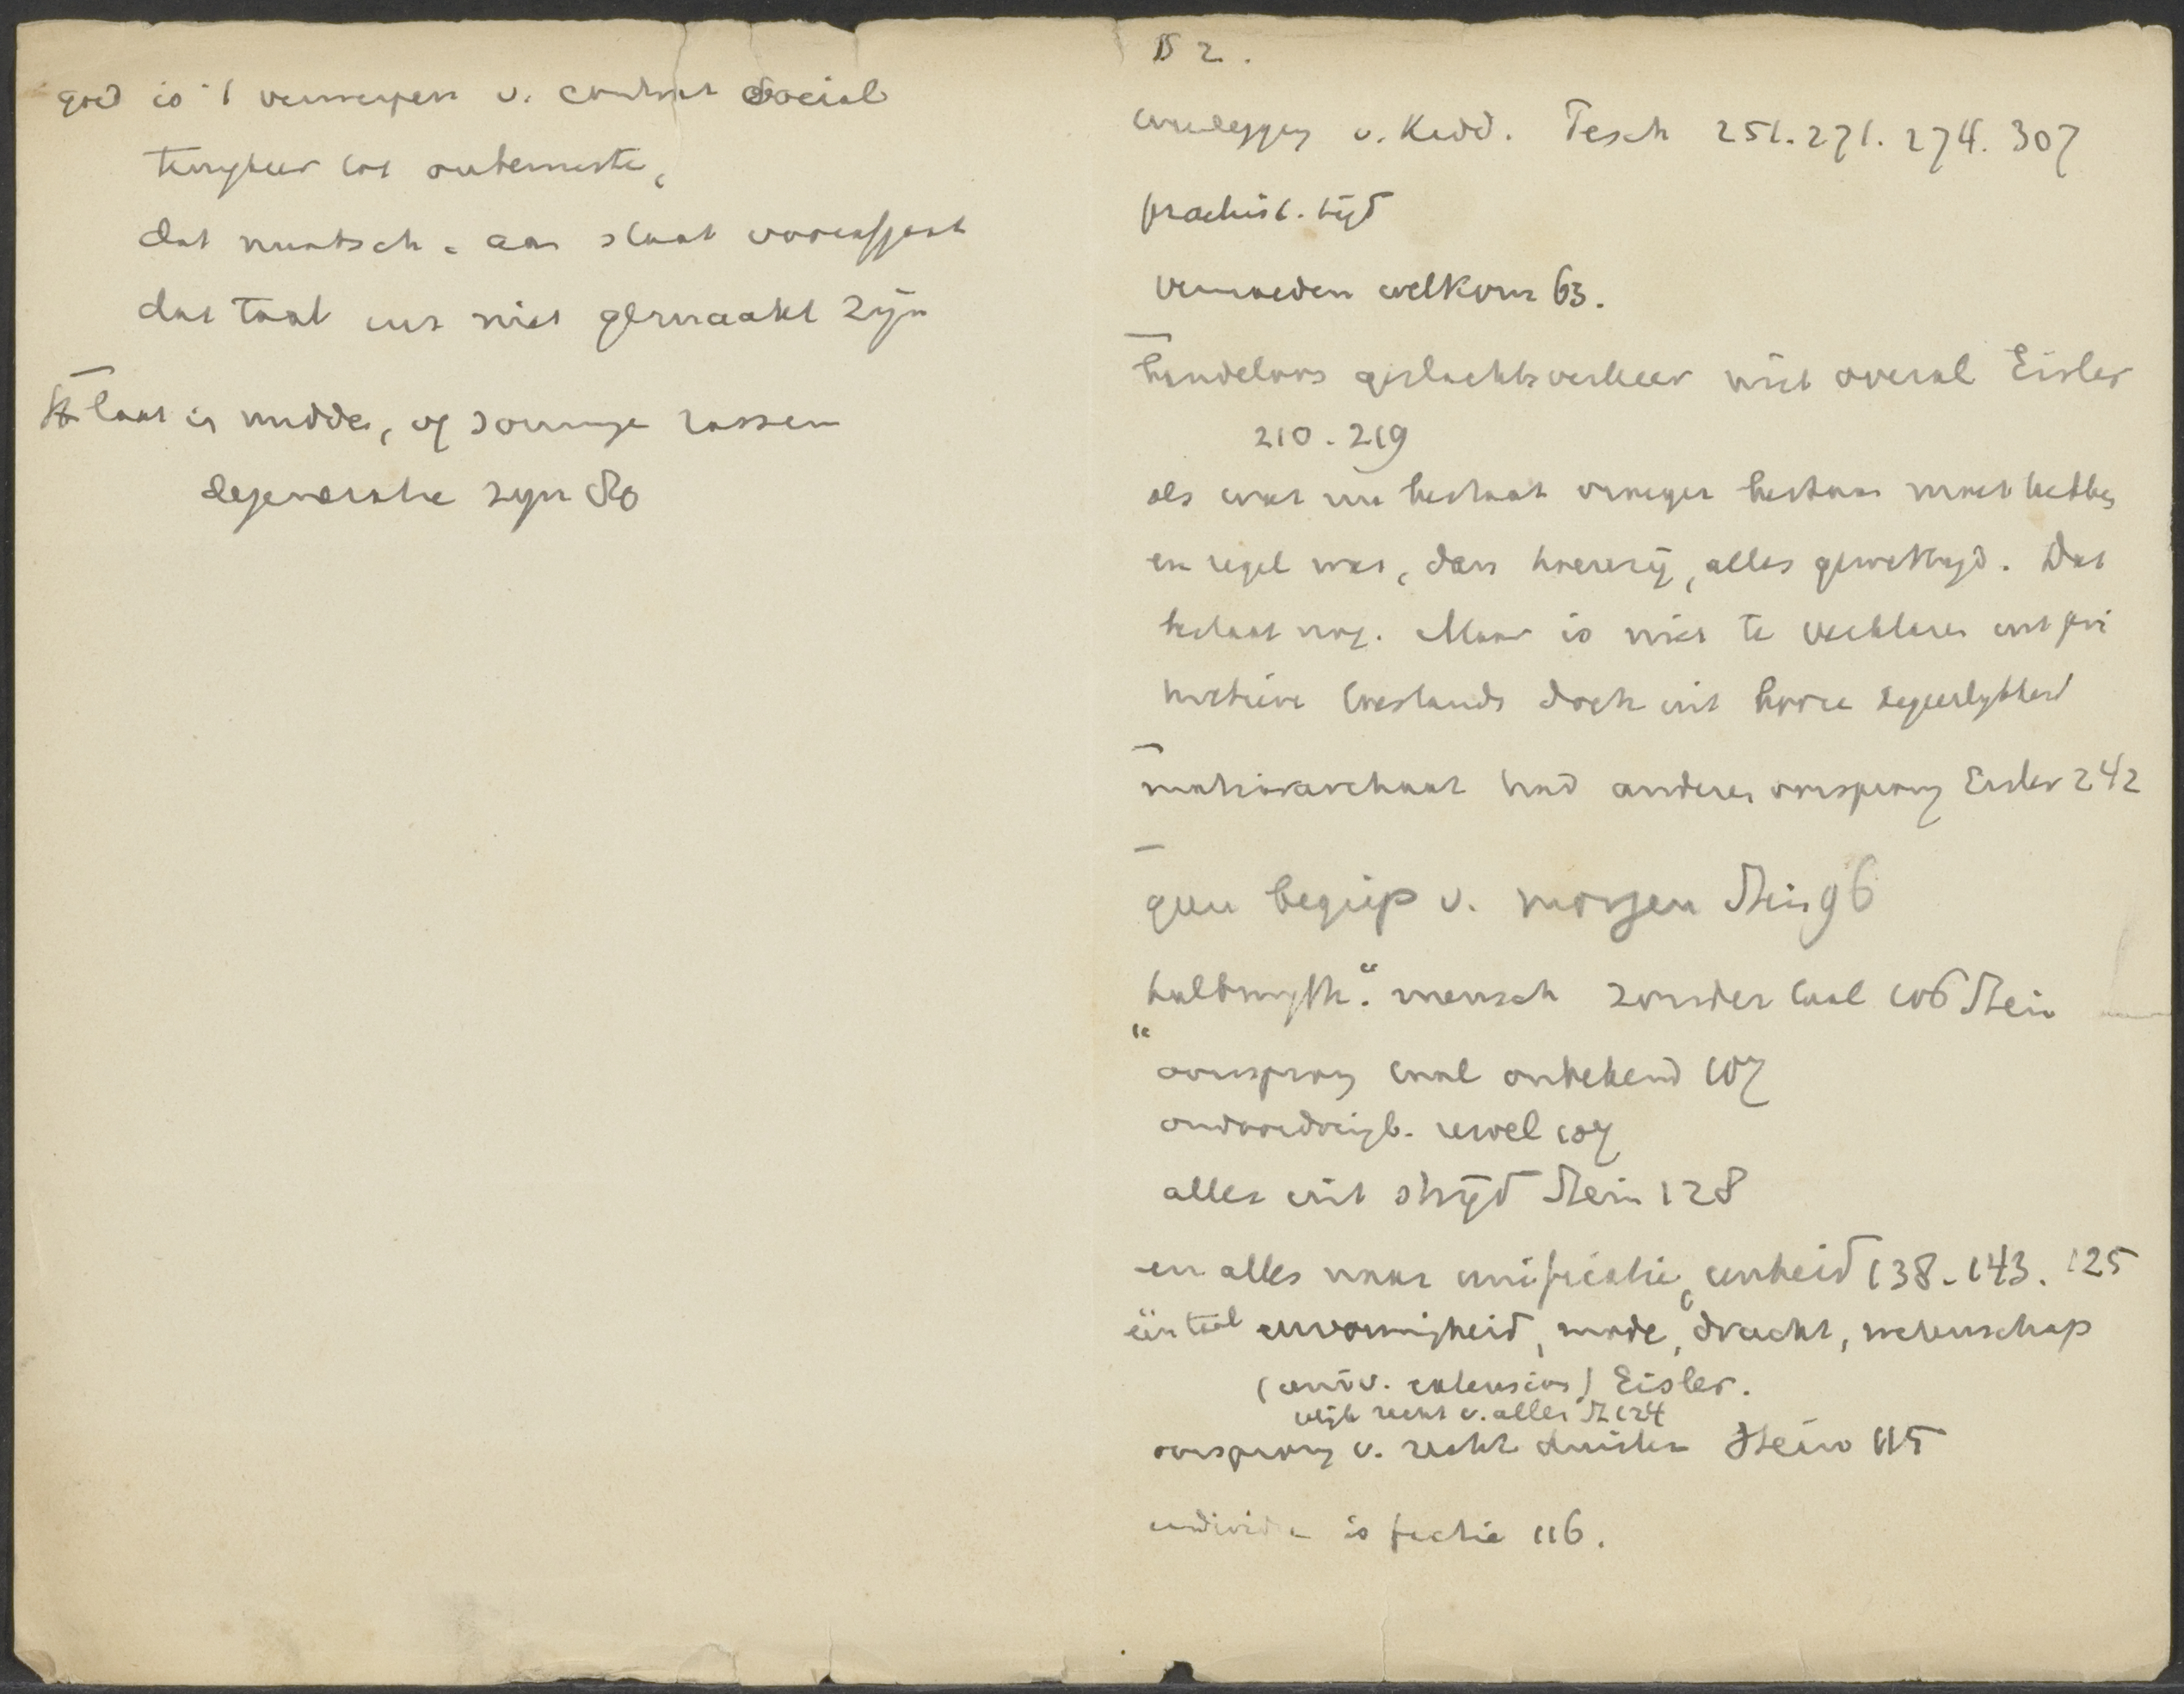 goed is 't verwerpen v. contrat social
terugkeer tot oubewuste,
dat maatsch. aan staat voorafgaat
dat taal enz niet gemaakt zijn
Staat is midden, of sommige rassen
degeneratie zijn 80
B 2.
weerlegging v. Kidd. Tesch 251. 271. 274. 307
praehist. tijd
vermoeden welkom 63.
bandeloos geslachtsverkeer niet overal Eisler
210. 219
als wat nu bestaat vroeger bestaan moet hebben
en regel was, dan hoererij, alles gewettigd. Dat
bestaat nog. Maar is niet te verklaren uit pri
mitieve toestands doch uit booze begeerlijkheid
matriarchaat had anderen oorsprong Eisler 242
geen begrip v. morgen Stein 96
"halbmyth." mensch zonder taal 106 Stein
oorsprong taal onbekend 107
107
alles uit strijd Stein 128
en alles naar unificatie, eenheid 138. 143. 125
één taal eenvormigheid, mode, dracht, wetenschap
(univ. extension) Eisler.
recht v. alles St 124
oorsprong v. recht duister Stein 115
individu is fictie 116.